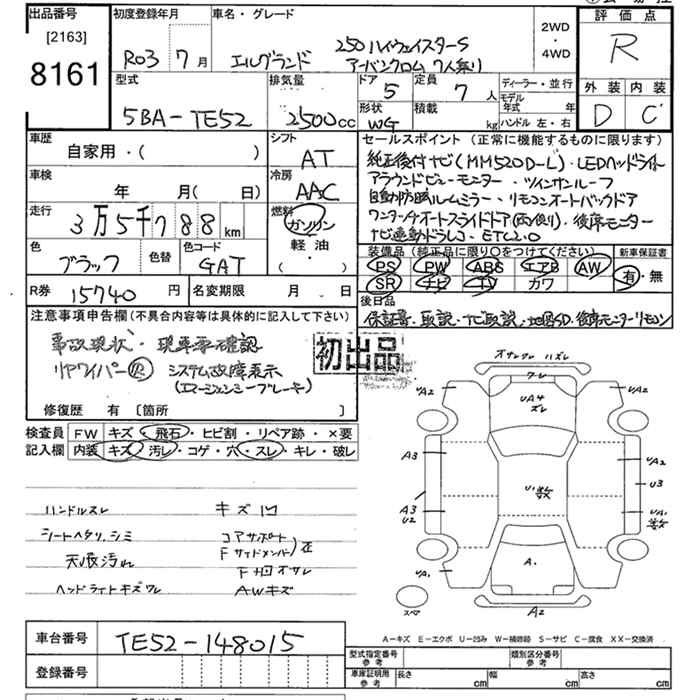 出品番号 初度登録年月 車名・グレード 評価点
[2163] 2WD
8161 R03 7月 エルグランド 250 ハイウェイスターS ・ R
アーバンクロム 7人乗り 4WD
型式 排気量 ドア 5 定員 7人 ディーラー・並行 外装 内装
5BA-TE52 2500cc 形状 WG 積載 kg モデル年式 年 D C
ハンドル 左・右
車歴 シフト セールスポイント(正常に機能するものに限ります)
自家用・( ) AT 純正後付ナビ(MM520D-L)・LEDヘッドライト
車検 冷房 アラウンドビューモニター・ツインサンルーフ
年 月 日 AAC 自動防眩ルームミラー・リモコンオートバックドア
走行 燃料 ワンタッチオートスライドドア(両側)・後席モニター
3万5千788km ガソリン ナビ連動ドラレコ・ETC2.0
色 色替 色コード 軽油 装備品(純正品に限り○をつけてください) 新車保証書
ブラック GAT ・( ) PS PW ABS エアB AW 有・無
SR ナビ TV カワ
R券 15740円 名変期限 月 日 後日品
注意事項申告欄(不具合内容等は具体的に記入して下さい) 保証書・取説・ナビ取説・地図SD・後席モニターリモコン
事故現状・現車要確認 初出品
リアワイパー システム故障表示
(エマージェンシーブレーキ)
修復歴 有 [箇所 ]
検査員 FW キズ・飛石・ヒビ割・リペア跡・×要
記入欄 内装 キズ・汚レ・コゲ・穴・スレ・キレ・破レ
オサレクル ハズレ
フレ
UA2 UA4 UA2
ズレ
A3 UA2
U・数 U3
A3 UA・
U2 数
UA・ A・ UA2
スペア A2
ハンドルスレ キズ凹
シートヘタリ、シミ コアサポート
天張汚れ Fサイドメンバー)歪
F凹オサレ
ヘッドライトキズワレ AWキズ
A-キズ E-エクボ U-凹み W-補修跡 S-サビ C-腐食 XX-交換済
車台番号 TE52-148015 型式指定番号 参考 類別区分番号 参考
登録番号 車庫証明用 参考 長さ cm 幅 cm 高さ cm